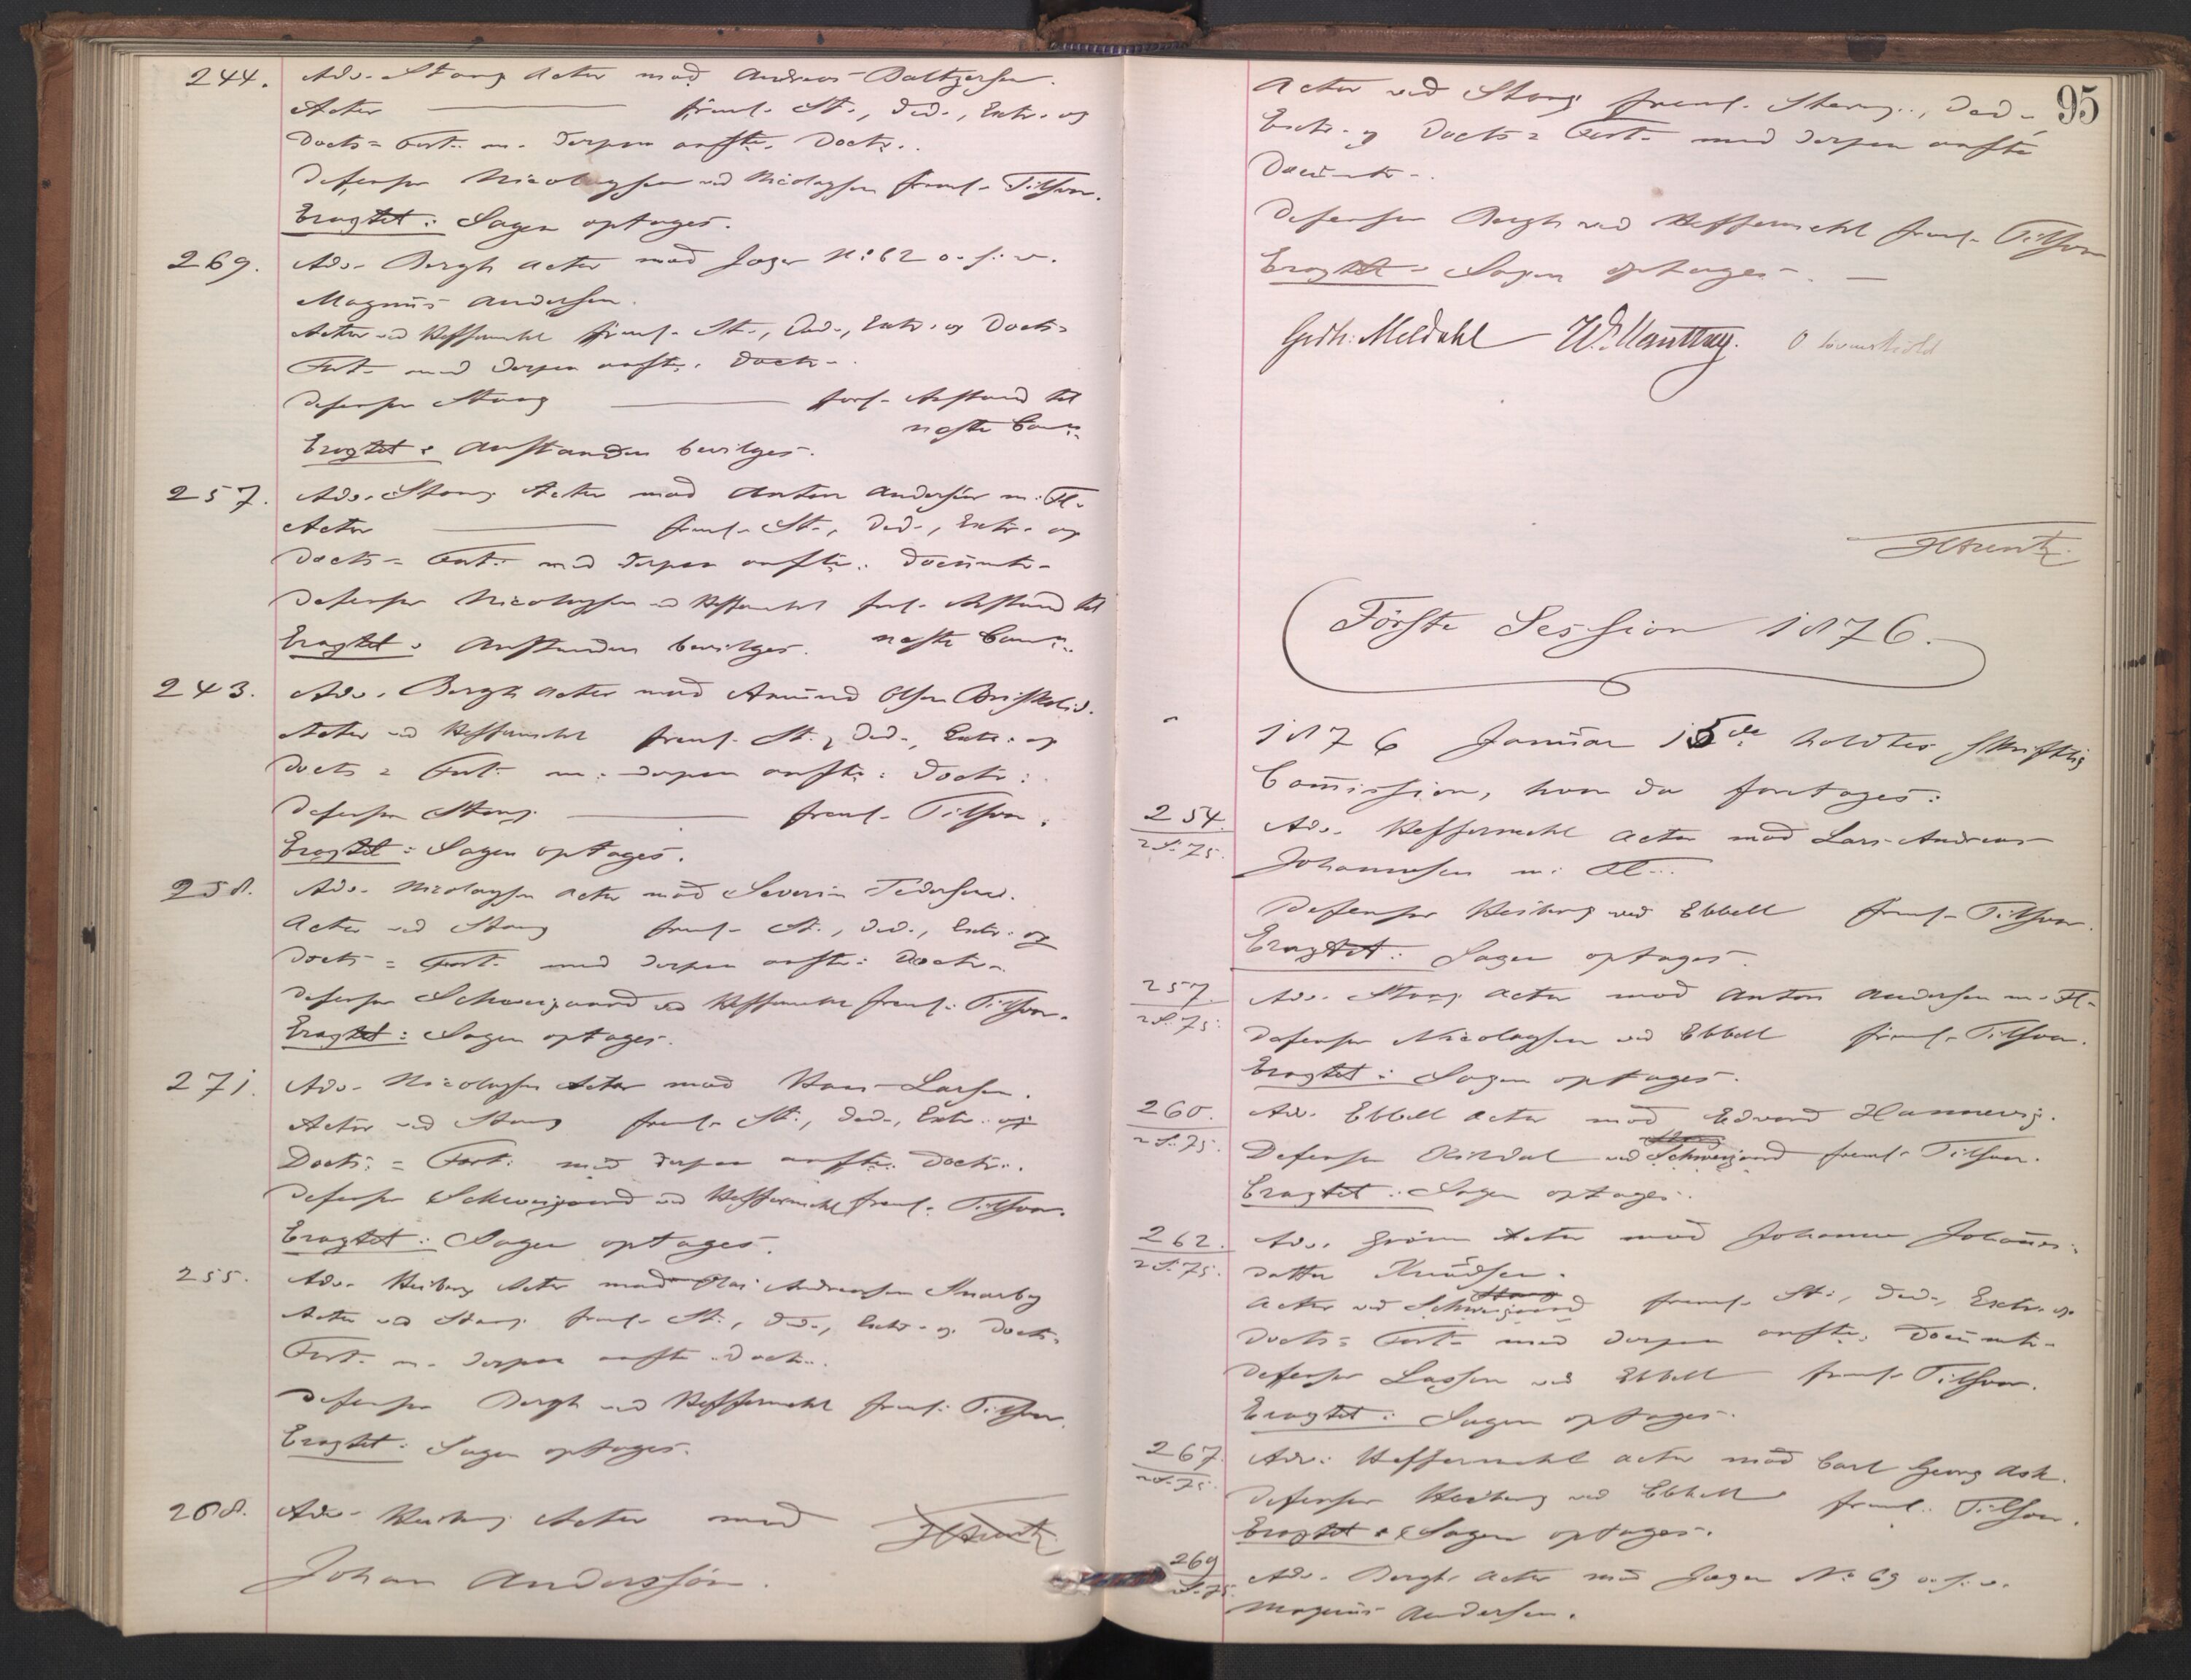 244. Adv. Stang Actor mod Andreas Baltzersen.
Actor — freml. St., Ded., Extr. og
Docts = Fort. m. derpaa anfte. Doctr.
Defensor Nicolaysen ved Nicolaysen freml. Tilsvar.
Eragtet: Sagen optages.
269. Adv. Bergh Actor mod Jæger No 62 o.s.v.
Magnus Andersen.
Actor ved Heffermehl freml. St., Ded., Extr. og Docts=
Fort. med derpaa anfte. Doctr.
Defensor Stang — forl. Anstand til
næste Comn.
Eragtet: Anstanden bevilges.
257. Adv. Stang Actor mod Anton Andersen m. Fl.
Actor — freml. St., Ded., Extr. og
Docts = Fort. med derpaa anfte. Documtr.
Defensor Nicolaysen ved Heffermehl forl. Anstand til
Eragtet: Anstanden bevilges. næste Comn.
243. Adv. Bergh Actor mod Amund Olsen
Actor ved Heffermehl freml. St., Ded., Extr. og
Docts = Fort. m. derpaa anfte: Doctr:
Defensor Stang — freml. Tilsvar.
Eragtet: Sagen optages.
258. Adv. Nicolaysen Actor mod Severin Pedersen.
Actor ved Stang freml. St., Ded., Extr. og
Docts = Fort. med derpaa anfte: Doctr.
Defensor Schweigaard ved Heffermehl freml. Tilsvar.
Eragtet: Sagen optages.
271. Adv. Nicolaysen Actor mod Hans Larsen.
Actor ved Stang freml. St., Ded., Extr. og
Docts. = Fort. med derpaa anfte. Doctr.
Defensor Schweigaard ved Heffermehl freml. Tilsvar.
Eragtet: Sagen optages.
255. Adv. Heiberg Actor mod Olai Andreasen Snarby
Actor ved Stang freml. St., Ded., Extr. og Docts=
Fort. m. derpaa anfte Doctr.
Defensor Bergh ved Heffermehl freml. Tilsvar.
Eragtet: Sagen optages.
268. Adv. Heiberg Actor mod
Johan Anderssøn.
95
Actor ved Stang freml. Stevng., Ded.,
Extr. og Docts = Fort. med derpaa anfte
Documtr.
Defensor Bergh ved Heffermehl freml. Tilsvar
Eragtet: Sagen optages. —
Grdh: Meldahl W. Manthey. O Løvenskiold
Første Session 1876.
1876 Januar 15de holdtes skriftlig
Comission, hvor da foretages:
254. 2 S. 75. Adv. Heffermehl Actor mod Lars Andreas
Johannesen m: Fl.
Defensor Heiberg ved Ebbell freml. Tilsvar.
Eragtet: Sagen optages.
257. 2 S. 75. Adv. Stang Actor mod Anton Andersen m. Fl.
Defensor Nicolaysen ved Ebbell freml. Tilsvar.
Eragtet: Sagen optages.
260. 2 S. 75. Adv. Ebbell Actor mod Edvard Hannevig.
Defensor ved Stang Schweigaard freml. Tilsvar.
Eragtet: Sagen optages.
262. 2 S. 75. Adv. Grørn Actor mod Johanne Johannes=
datter Knudsen.
Actor ved Stang Schweigaard freml. St., Ded., Extr. og
Docts = Fort. med derpaa anfte. Documtr.
Defensor Lassen ved Ebbell freml. Tilsvar.
Eragtet: Sagen optages.
267. 2 S. 75. Adv. Heffermehl Actor mod Carl Georg Ask.
Defensor Heiberg ved Ebbell freml. Tilsvar.
Eragtet: Sagen optages.
269 2 S. 75. Adv. Bergh Actor mod Jæger No 69 o.s.v.
Magnus Andersen.